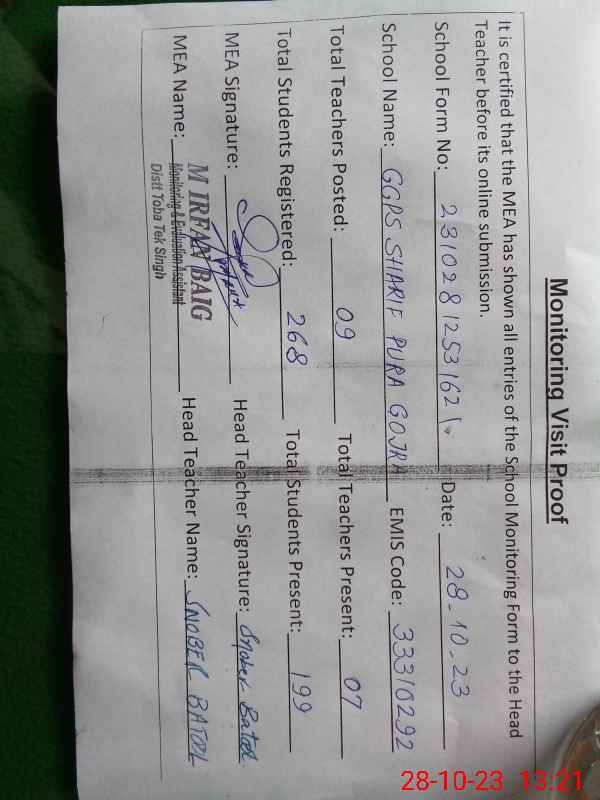 Monitoring Visit Proof
It is certified that the MEA has shown all entries of the School Monitoring Form to the Head
Teacher before its online submission.
School Form No: 23102812531621 Date: 28-10-23
School Name: GGPS SHARIF PURA GOJRA EMIS Code: 33310292
Total Teachers Posted: 09 Total Teachers Present: 07
Total Students Registered: 268 Total Students Present: 199
MEA Signature: Head Teacher Signature: Snober Batool
MEA Name: M IRFAN BAIG Head Teacher Name: SNOBER BATOOL
Monitoring & Evaluation Assistant
Distt Toba Tek Singh
28-10-23 13:21